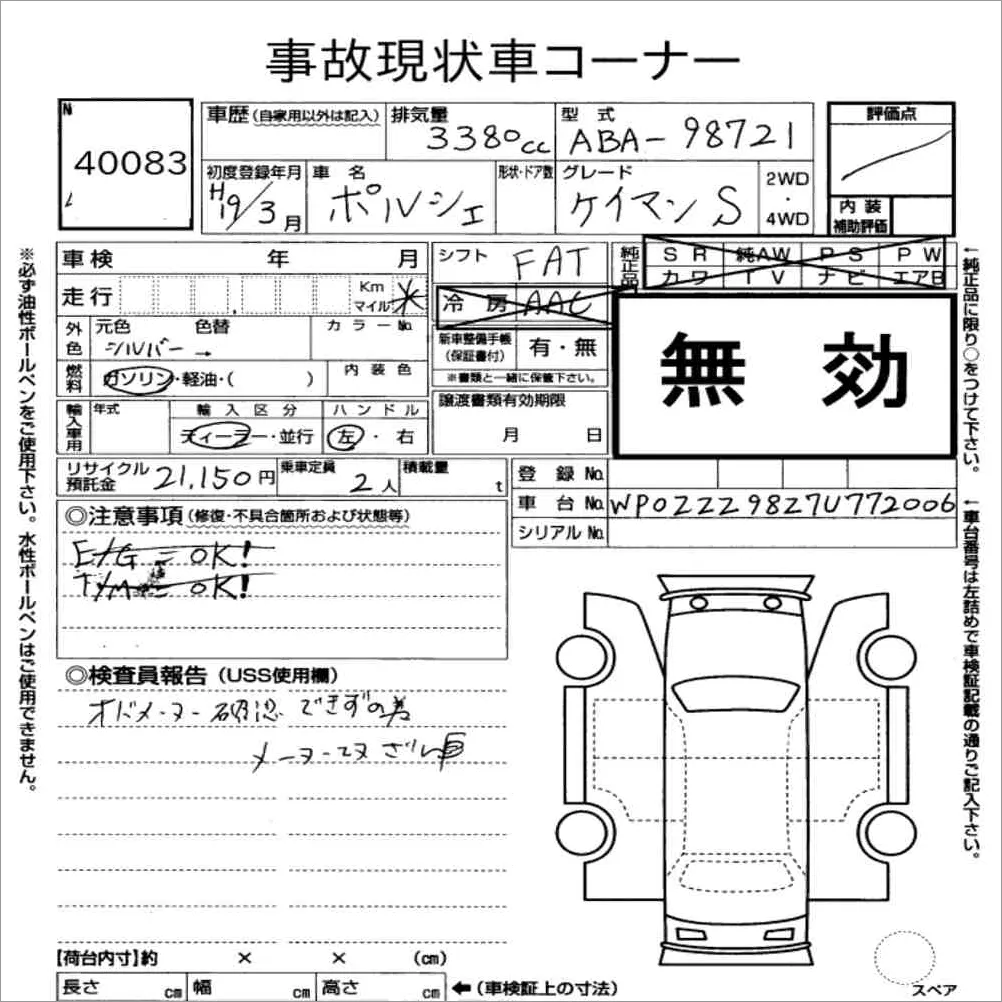 事故現状車コーナー
N
40083
車歴(自家用以外は記入)
排気量
3380cc
型式
ABA-98721
評価点
初度登録年月
H19/3月
車名
ポルシェ
形状・ドア数
グレード
ケイマン S
2WD
・
4WD
内装
補助評価
車検 年 月
シフト
FAT
純正品
SR 純AW PS PW
カワ TV ナビ エアB
走行
Km
マイル
*
冷房 AAC
外色
元色 色替
シルバー →
カラーNo.
新車整備手帳
(保証書付)
有・無
※書類と一緒に保管下さい。
無効
燃料
ガソリン・軽油・( )
内装色
輸入車用
年式
輸入区分
ディーラー・並行
ハンドル
左・右
譲渡書類有効期限
月 日
リサイクル
預託金
21,150円
乗車定員
2人
積載量
t
登録No.
車台No.
WP0ZZZ98Z7U772006
シリアルNo.
◎注意事項(修復・不具合箇所および状態等)
E/G = OK!
T/M = OK!
◎検査員報告(USS使用欄)
オドメーター確認できずの為
メーター改ざん車
【荷台内寸】約 × × (cm)
長さ cm 幅 cm 高さ cm
←(車検証上の寸法)
スペア
※必ず油性ボールペンをご使用下さい。水性ボールペンはご使用できません。
←純正品に限り○をつけて下さい。
←車台番号は左詰めで車検証記載の通りご記入下さい。